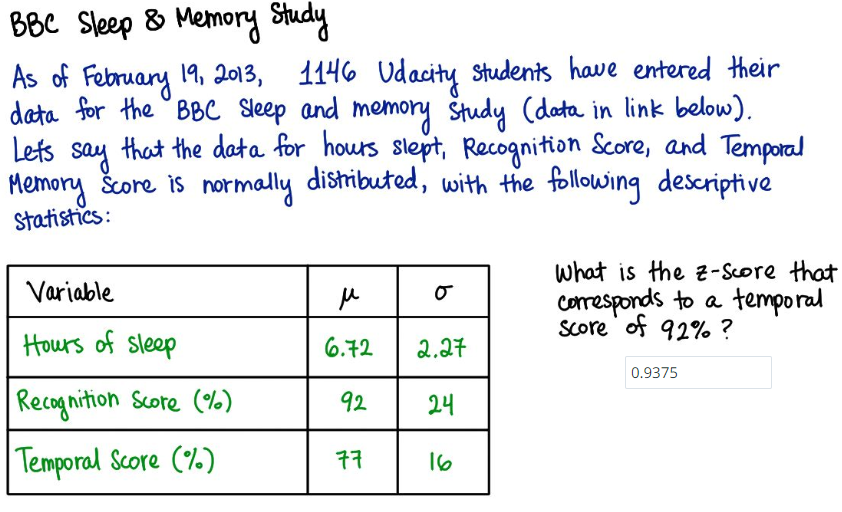 BBC Sleep & Memory Study
As of February 19, 2013, 1146 Udacity students have entered their
data for the BBC Sleep and memory study (data in link below).
Lets say that the data for hours slept, Recognition Score, and Temporal
Memory Score is normally distributed, with the following descriptive
statistics:
Variable μ σ
Hours of sleep 6.72 2.27
Recognition Score (%) 92 24
Temporal Score (%) 77 16
What is the z-score that
corresponds to a temporal
score of 92%?
0.9375